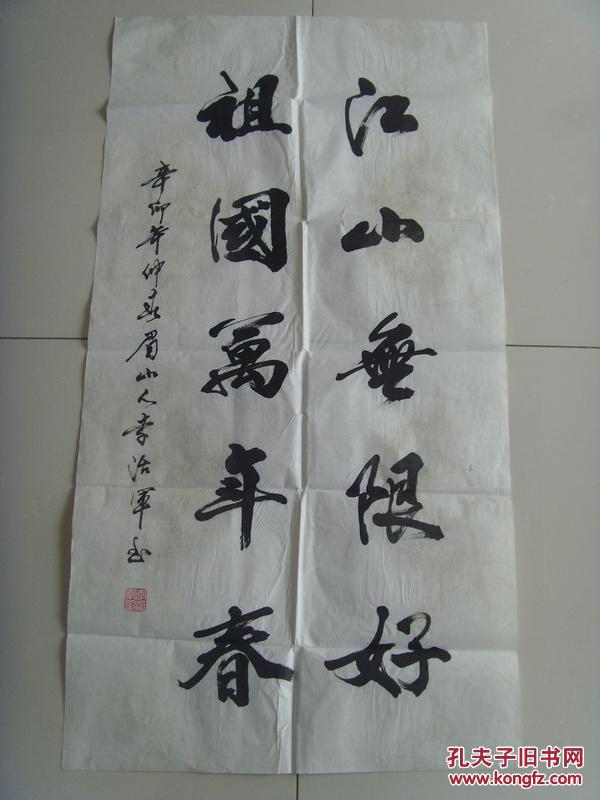 江山無限好
祖國萬年春
辛卯年仲春眉山人李治軍书
孔夫子旧书网
www.kongfz.com